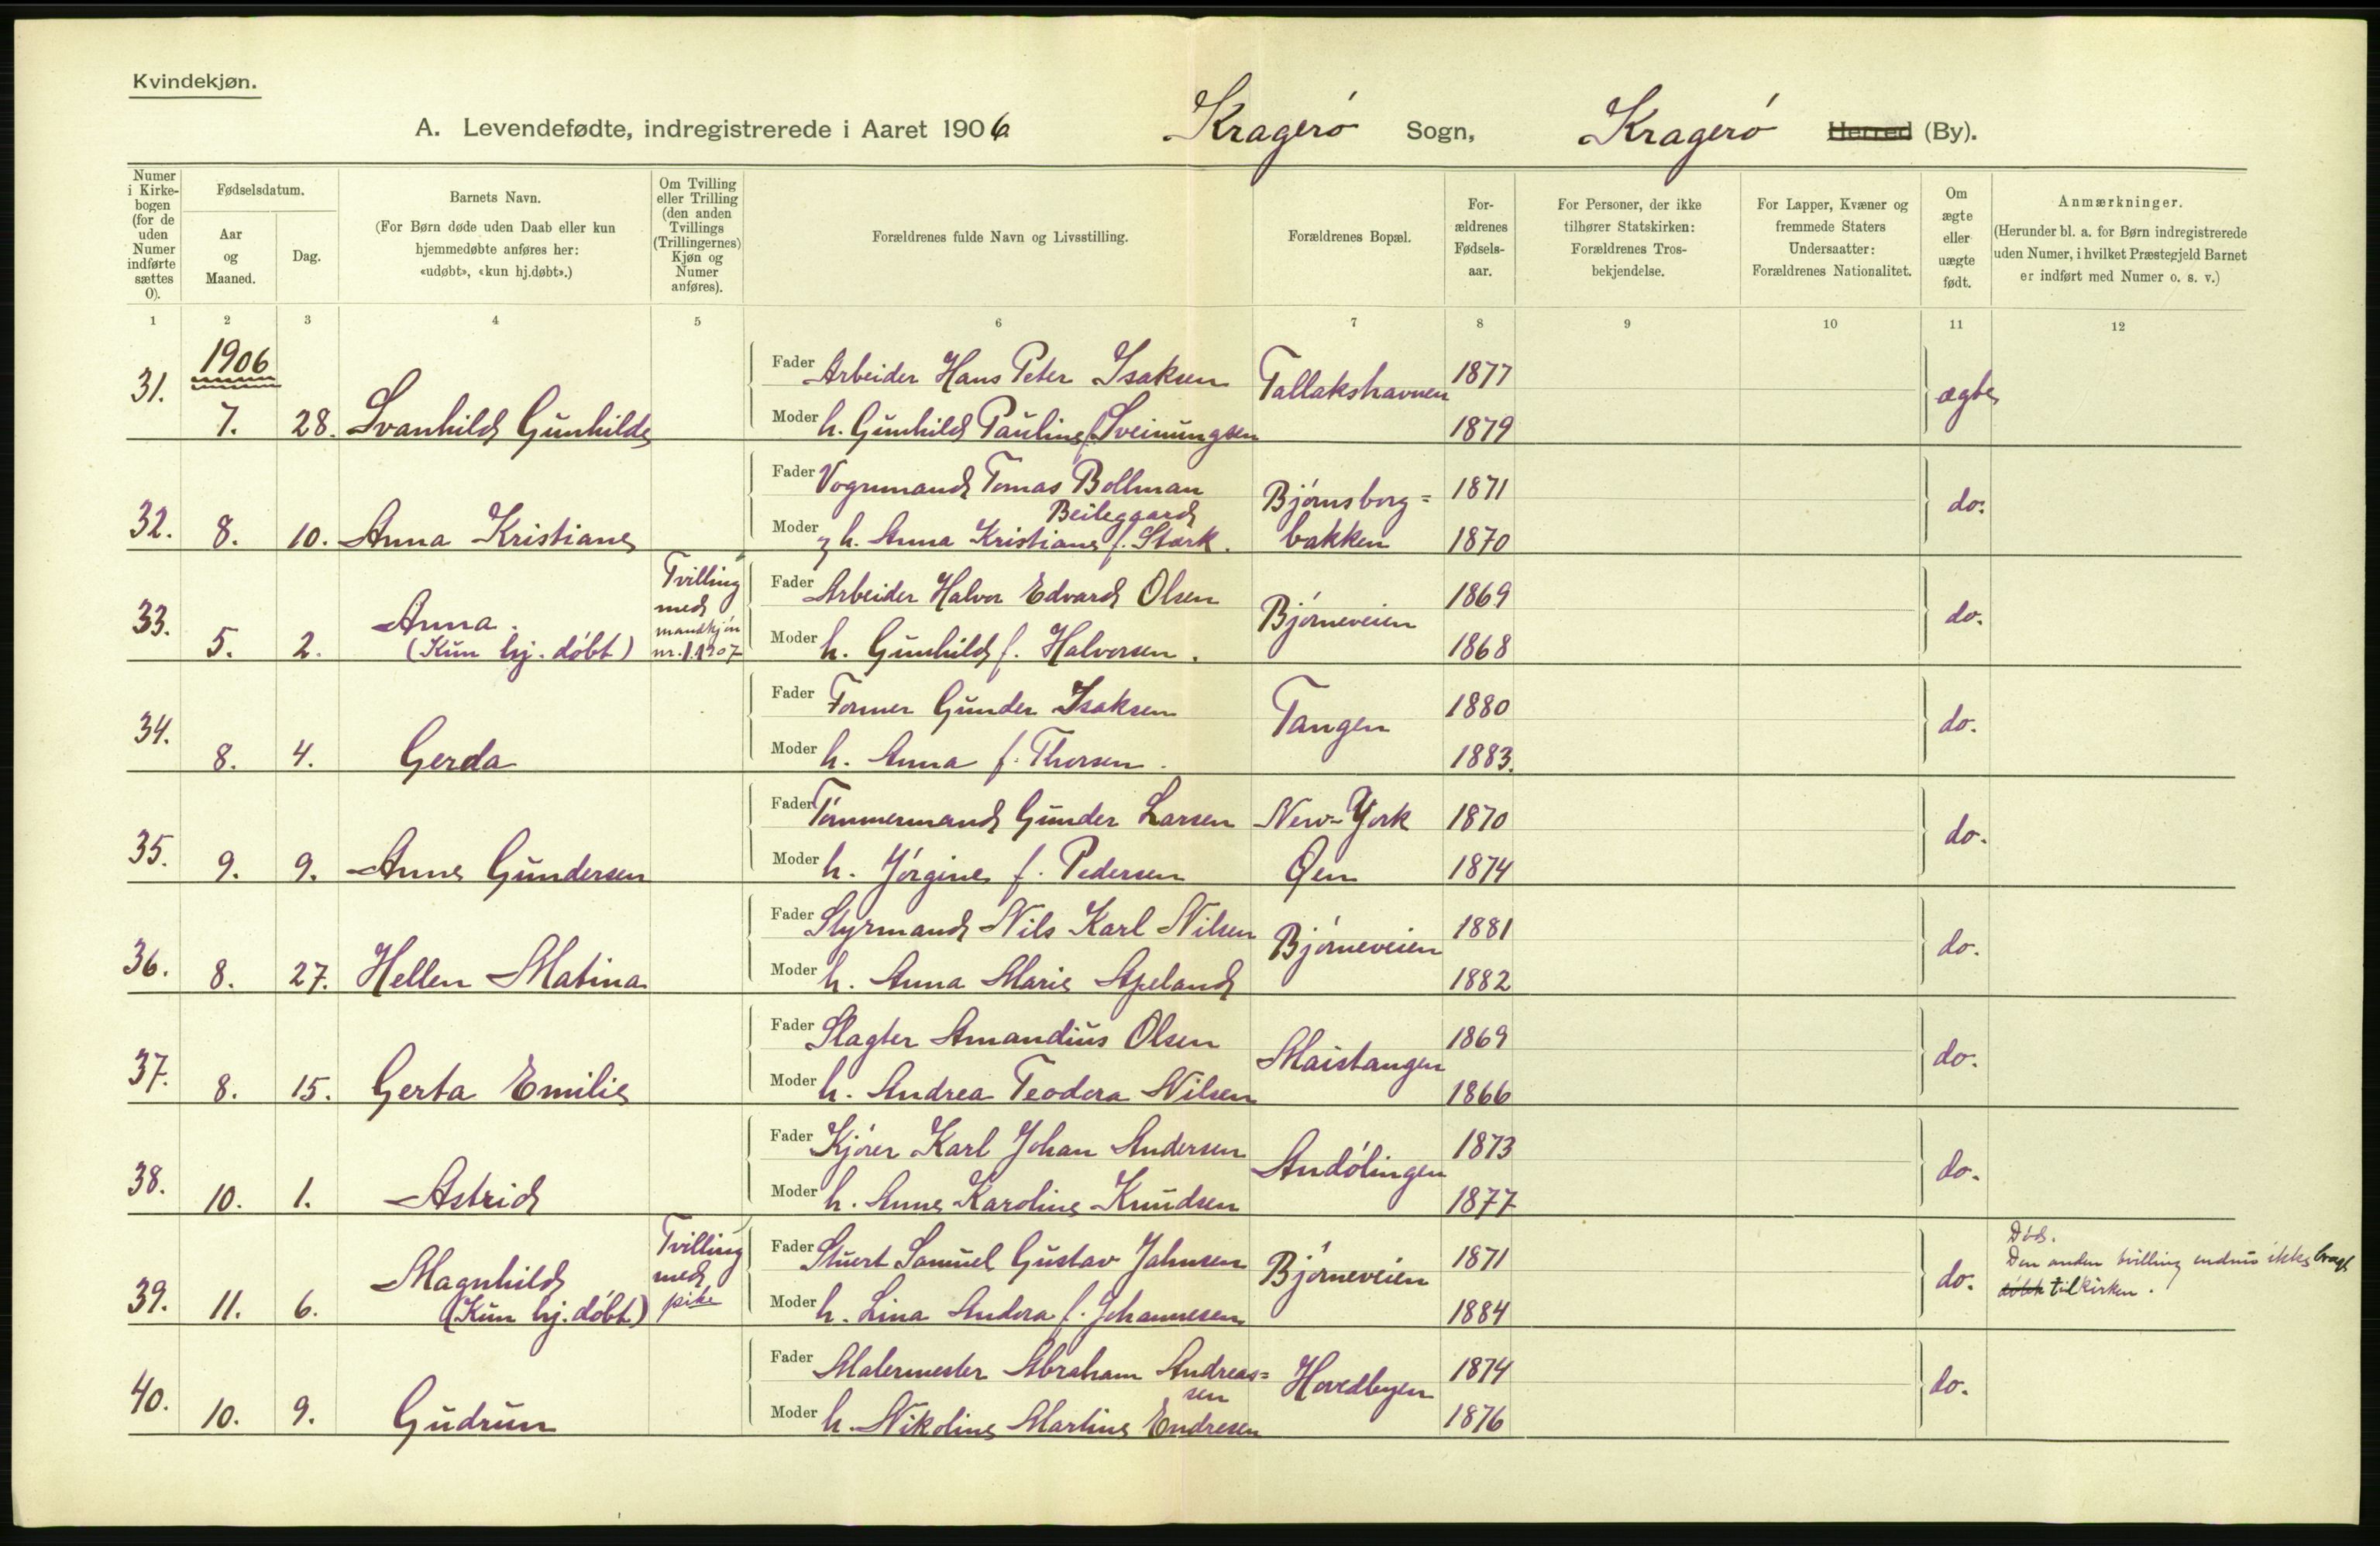 Kvindekjøn.
A. Levendefødte, indregistrerede i Aaret 1906 Kragerø Sogn, Kragerø Herred (By).
Numer i Kirke-bogen (for de uden Numer indførte sættes 0).
Fødselsdatum.
Aar og Maaned.
Dag.
Barnets Navn.
(For Børn døde uden Daab eller kun hjemmedøbte anføres her: «udøbt», «kun hj.døbt».)
Om Tvilling eller Trilling (den anden Tvillings (Trillingernes) Kjøn og Numer anføres).
Forældrenes fulde Navn og Livsstilling.
Forældrenes Bopæl.
For-ældrenes Fødsels-aar.
For Personer, der ikke tilhører Statskirken: Forældrenes Tros-bekjendelse.
For Lapper, Kvæner og fremmede Staters Undersaatter: Forældrenes Nationalitet.
Om ægte eller uægte født.
Anmærkninger.
(Herunder bl. a. for Børn indregistrerede uden Numer, i hvilket Præstegjeld Barnet er indført med Numer o. s. v.)
1 2 3 4 5 6 7 8 9 10 11 12
1906
31. Fader Arbeider Hans Peter Isaksen Tallakshavnen 1877 ægte
7. 28. Svanhild Gunhilde Moder h. Gunhild Pauline f. Sveinungsen 1879
Fader Vognmand Tomas Bollman Beilegaard Bjørnsborg= 1871 do.
32. 8. 10. Anna Kristiane Moder h. Anna Kristiane f. Stærk. bakken 1870
33. Anna. Tvilling med mandkjøn nr. 1. 1907 Fader Arbeider Halvor Edvard Olsen Bjørneveien 1869 do.
5. 2. (Kun hj. døbt) Moder h. Gunhild f. Halvorsen. 1868
34. Fader Former Gunder Isaksen Tangen 1880 do.
8. 4. Gerda Moder h. Anna f. Thorsen. 1883.
35. Fader Tømmermand Gunder Larsen New-York 1870 do.
9. 9. Anne Gundersen Moder h. Jørgine f. Pedersen Øen 1874
36. Fader Styrmand Nils Karl Nilsen Bjørneveien 1881 do.
8. 27. Hellen Matina Moder h. Anna Marie Apeland 1882
37. Fader Slagter Amandius Olsen Maistangen 1869 do.
8. 15. Gerta Emilie Moder h. Andrea Teodora Nilsen 1866
38. Fader Kjører Karl Johan Andersen Andølingen 1873 do.
10. 1. Astrid Moder h. Anne Karoline Knudsen 1877
39. Magnhild Tvilling med pike Fader Stuert Samuel Gustav Jahnsen Bjørneveien 1871 do. Død.
Den anden tvilling endnu ikke bragt
til kirken.
11. 6. (Kun hj. døbt.) Moder h. Lina Andora f. Johannesen 1884
40. Fader Malermester Abraham Andreas=sen Hovedbyen 1874 do.
10. 9. Gudrun Moder h. Nikoline Martine Endresen 1876